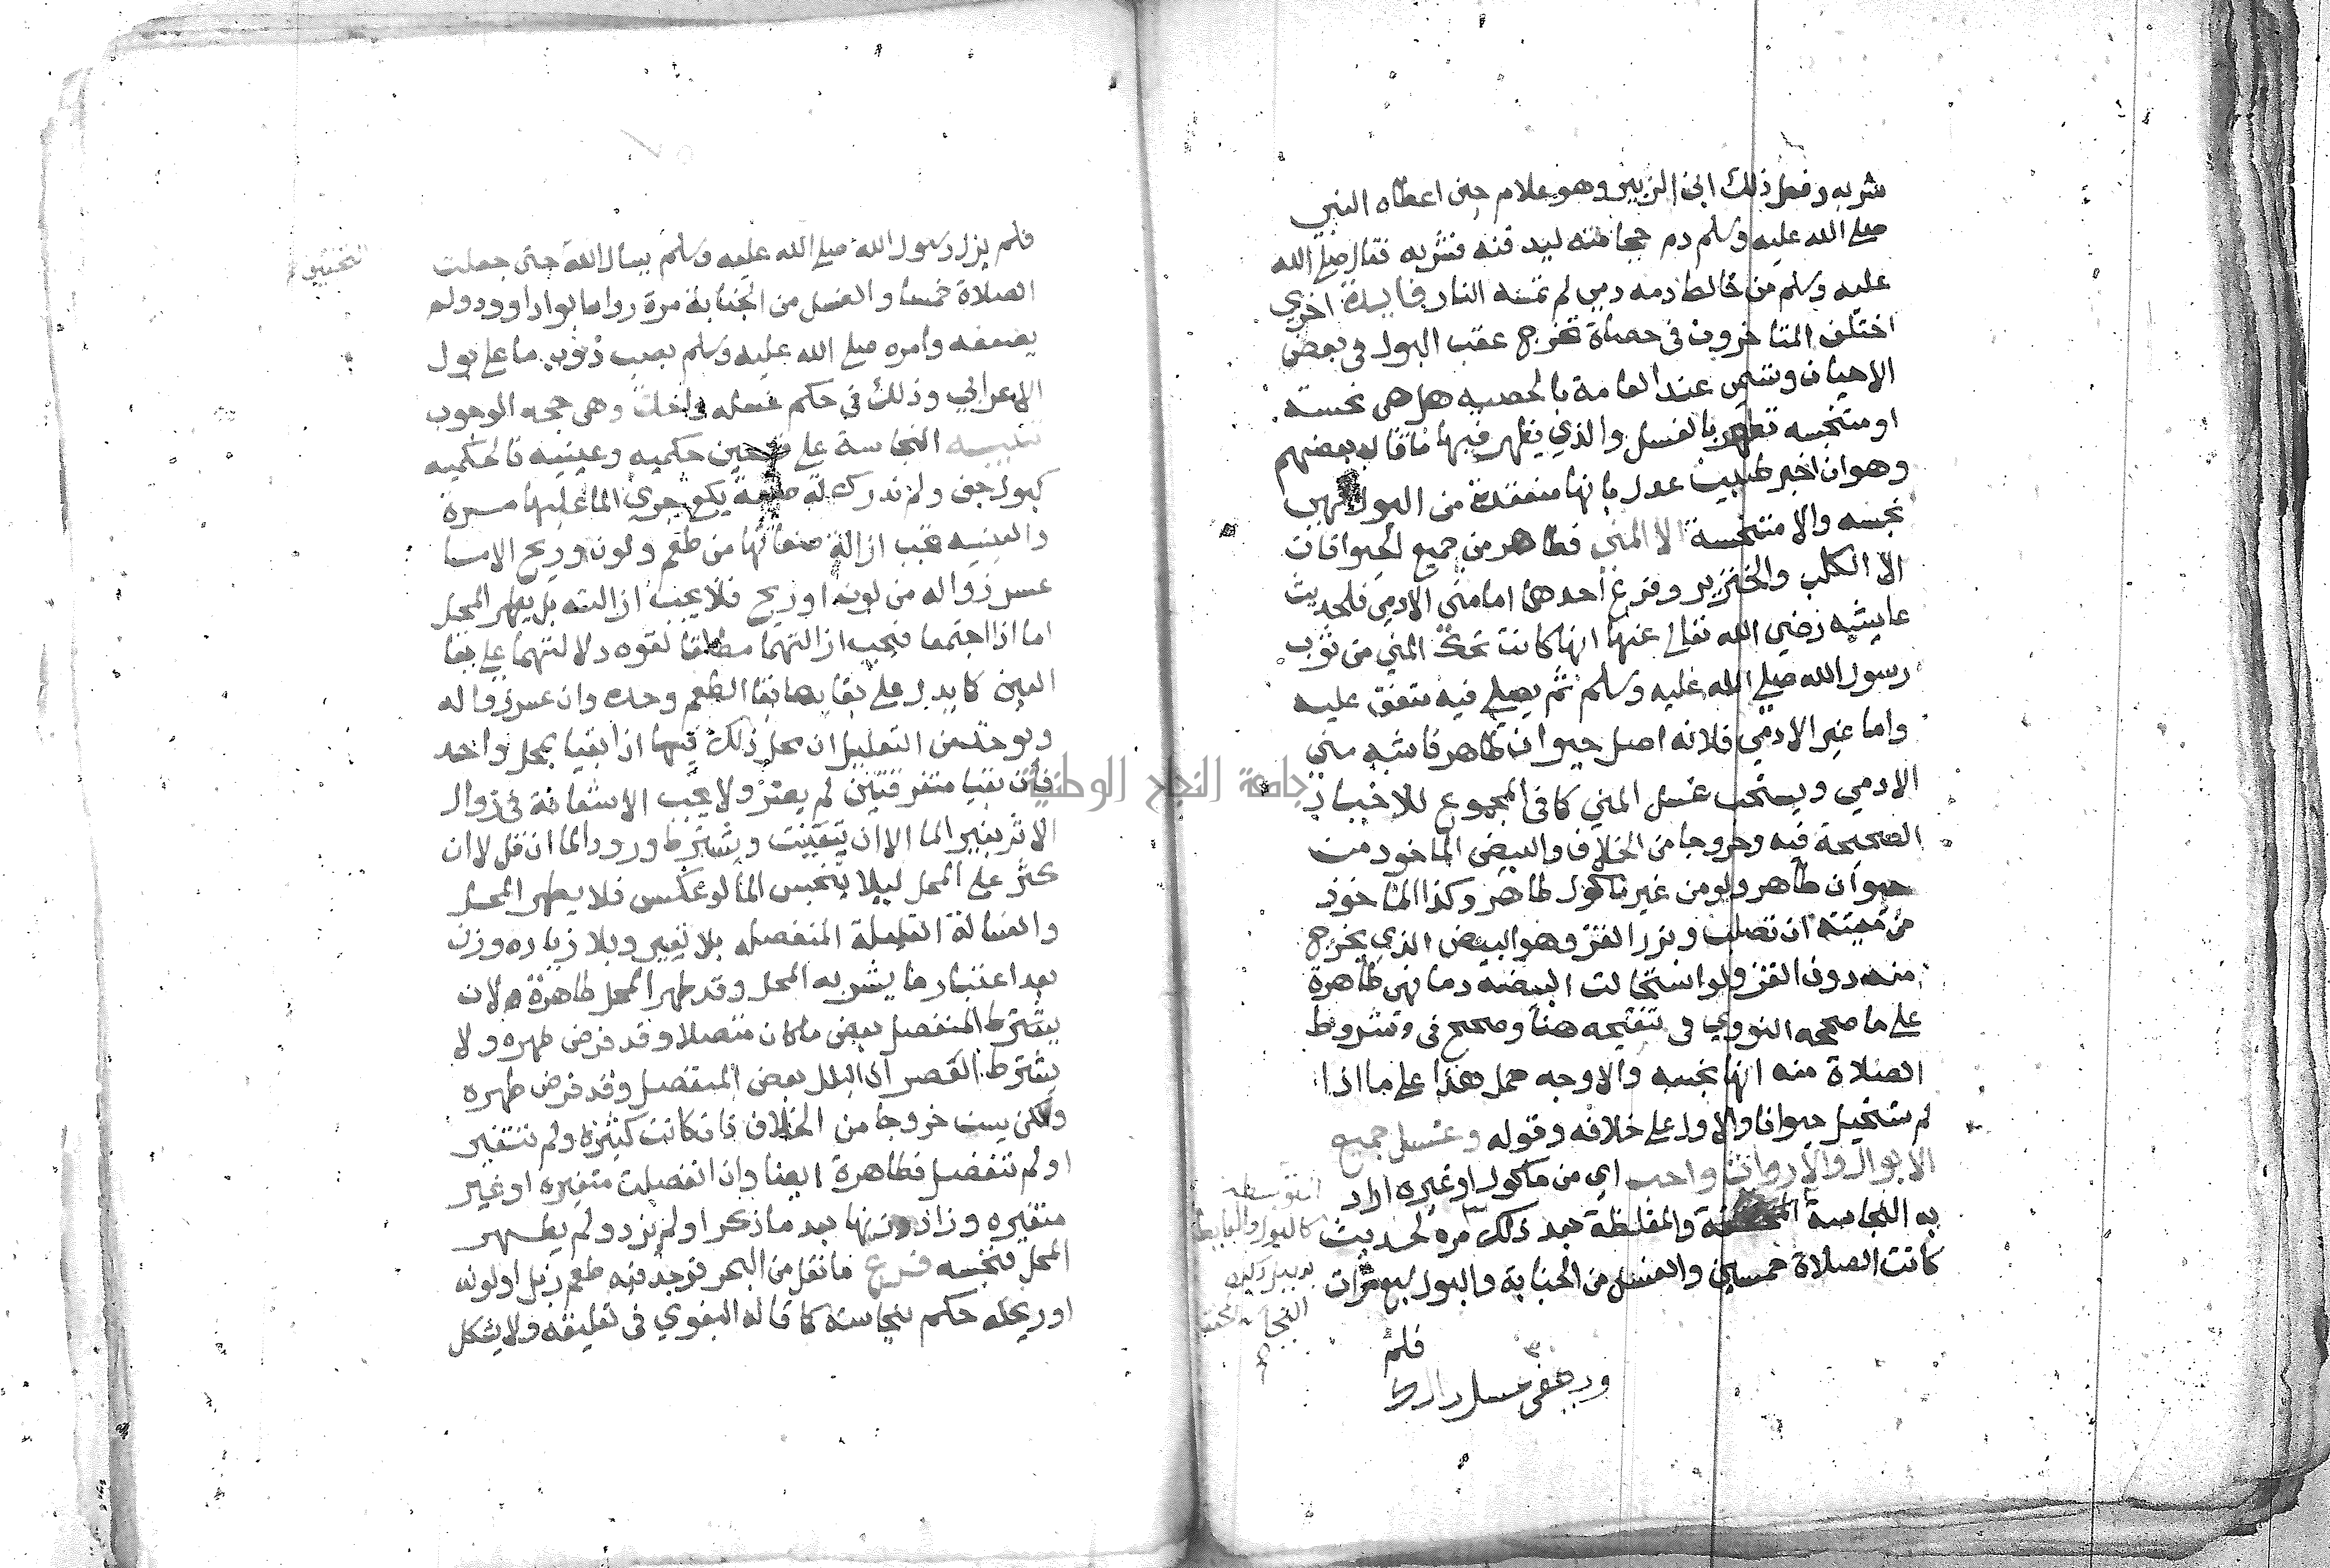 شربه وفعل ذلك ابن الزبير وهو غلام حين اعطاه النبي
صلى الله عليه وسلم دم حجامته ليدفنه فشربه فقال صلى الله
عليه وسلم من خالط دمه دمي لم تمسه النار فايدة اخري
اختلف المتاخرون في حصاة تخرج عقب البول في بعض
الاحيان وتسمى عند العامة بالحصيه هل هي نجسة
او متنجسه تطهر بالغسل والذي يظهر فيها ما قاله بعضهم
وهو ان اخبر طبيب عدل بانها منعقدة من البول فهي
نجسه والا متنجسة الا المني فطاهر من جميع الحيوانات
الا الكلب والخنزير وفرع احدهما اما مني الادمي فلحديث
عايشه رضي الله تعالى عنها انها كانت تحك المني من ثوب
رسول الله صلى الله عليه وسلم ثم يصلي فيه متفق عليه
واما غير الادمي فلانه اصل حيوان طاهر فاشبه مني
الادمي ويستحب غسل المني كما في المجموع للاخبار
الصحيحة فيه وخروجا من الخلاف والبيض الماخوذ من
حيوان طاهر ولو من غير ماكول طاهر وكذا الماخوذ
من ميتة ان تصلب وبزر القز وهو البيض الذي يخرج
منه دون القز ولو استحالت البيضة دما فهي طاهرة
على ما صححه النووي في تنقيحه هنا وصحح في شروط
الصلاة منه انها نجسه والاوجه حمل هذا على ما اذا
لم تستحيل حيوانا والاول على خلافه وقوله وغسل جميع
الابوال والارواث واجب اي من ماكول او غيره اراد
به النجاسة والمغلظة بعد ذلك مره لحديث
كانت الصلاة خمسين والغسل من الجنابة والبول سبع مرات
فلم
المتوسطه
كالبول والغايط
فلم يزل رسول الله صلى الله عليه وسلم يسال الله حتى جعلت
الصلاة خمسا والغسل من الجنابة مرة رواه ابو داوود ولم
يضعفه وامره صلى الله عليه وسلم بصب ذنوب ما على بول
الاعرابي وذلك في حكم غسله واحدة وهي حجه الوجوب
تنبيه النجاسة على قسمين حكميه وعينيه فالحكميه
كبول جف ولم تدرك له صفة يكفي جري الما عليها مرة
والعينيه تجب ازالة صفاتها من طعم ولون وريح الا ما
عسر زواله من لون او ريح فلا يجب ازالته بل يطهر المحل
اما اذا اجتمعا فتجب ازالتهما مطلقا لقوه دلالتهما على بقا
العين كما يدل على بقايها بقا الطعم وحده وان عسر زواله
ويوخذ من التعليل ان محل ذلك فيما اذا بقيا بمحل واحد
فان بقيا متفرقين لم يضر ولا يجب الاستعانة في زوال
الاثر بغير الما الا ان تعينت ويشترط ورود الما ان قل لا ان
كثر على المحل ليلا يتنجس الما لو عكس فلا يطهر المحل
والغسالة القليلة المنفصله بلا تغير وبلا زياده وزن
بعد اعتبار ما يشربه المحل وقد طهر المحل طاهرة لان
المنفصل بعض ما كان متصلا وقد فرض طهره ولا
يشترط العصر اذ البلل بعض المنفصل وقد فرض طهره
ولكن يسن خروجا من الخلاف فان كانت كثيرة ولم تتغير
او لم تنفصل فطاهرة ايضا وان انفصلت متغيره او غير
متغيره وزاد وزنها بعد ما ذكر او لم يزد ولم يطهر
المحل فنجسه فرع ما نقل من البحر فوجد فيه طعم زبل او لونه
او ريحه حكم بنجاسته كما قاله البغوي في تعليقه ولا يشكل
جامعة النجاح الوطنية